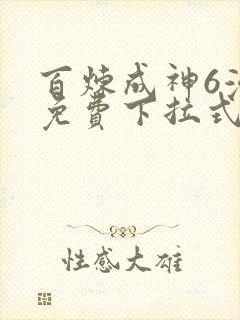 百炼成神6
免費下拉式
性感大雄